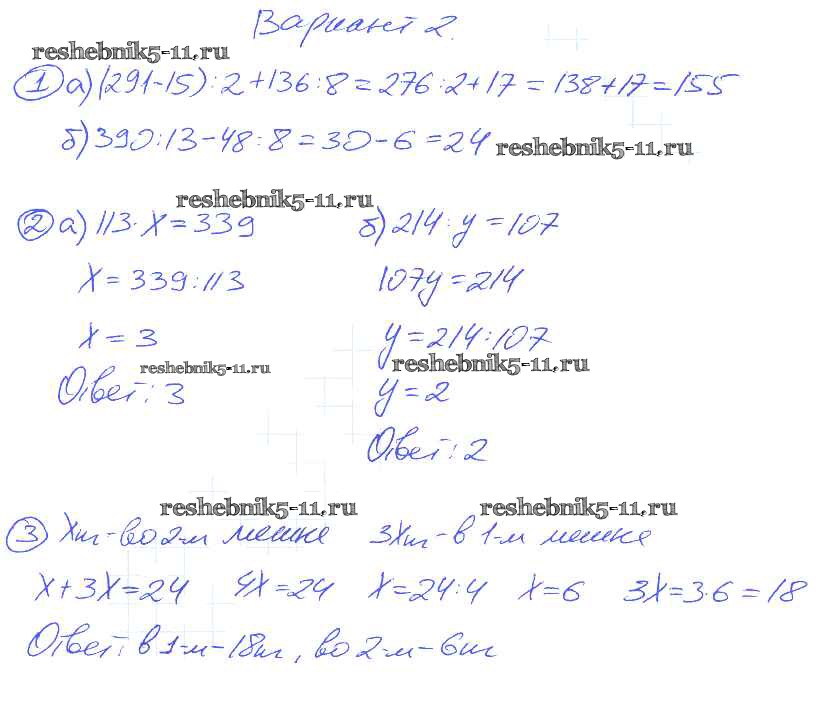 Вариант 2.
reshebnik5-11.ru
① а) (291-15) : 2 + 136 : 8 = 276 : 2 + 17 = 138 + 17 = 155
б) 390 : 13 - 48 : 8 = 30 - 6 = 24 reshebnik5-11.ru
reshebnik5-11.ru
② а) 113 · x = 339 б) 214 : y = 107
x = 339 : 113 107y = 214
x = 3 y = 214 : 107
reshebnik5-11.ru reshebnik5-11.ru
Ответ: 3 y = 2
Ответ: 2
reshebnik5-11.ru reshebnik5-11.ru
③ x кг - во 2-м мешке 3x кг - в 1-м мешке
x + 3x = 24 4x = 24 x = 24 : 4 x = 6 3x = 3 · 6 = 18
Ответ: в 1-м - 18 кг, во 2-м - 6 кг